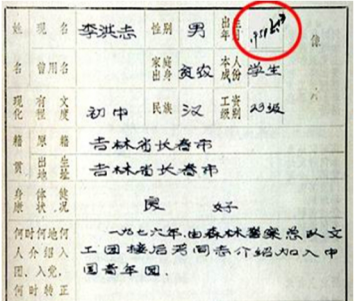 姓 现名 李洪志 性别 男 出生年月
名 曾用名 家庭出身 贫农 本人成份 学生
现有文化程度 初中 民族 汉 工资级别 23级
籍贯 原籍 吉林省长春市
出生地址 吉林省长春市
身体健康状况 良好
何时何地何 一九七六年由森林警察总队文
人介绍入 工团 同志介绍加入中
团、入党, 国青年团.
何时转正
像